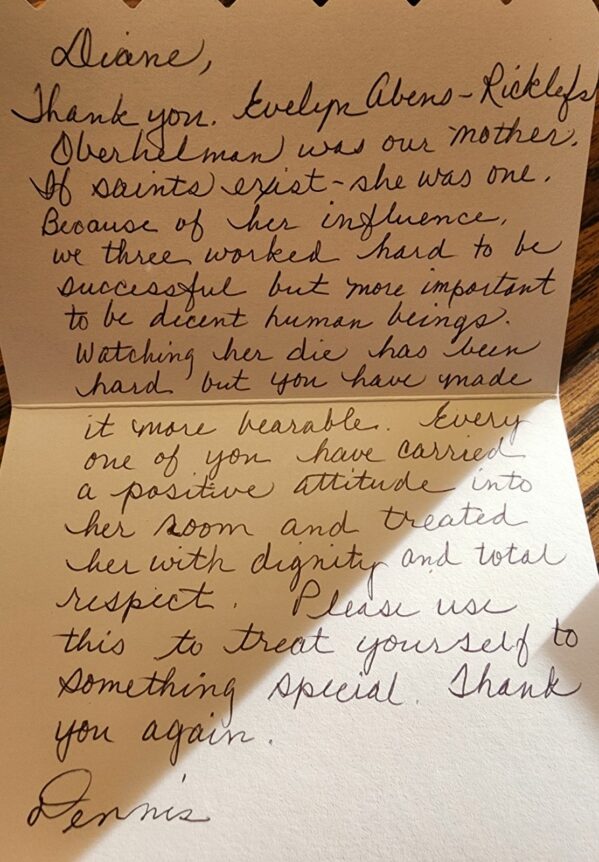 Diane,
Thank you. Evelyn Abens-Ricklefs
Oberhelman was our mother.
If saints exist - she was one.
Because of her influence,
we three worked hard to be
successful but more important
to be decent human beings.
Watching her die has been
hard but you have made
it more bearable. Every
one of you have carried
a positive attitude into
her room and treated
her with dignity and total
respect. Please use
this to treat yourself to
something special. Thank
you again.
Dennis